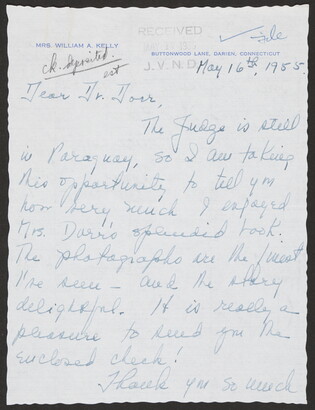 RECEIVED
J. V. N. D.
File
MRS. WILLIAM A. KELLY
BUTTONWOOD LANE, DARIEN, CONNECTICUT
ck. deposited.
May 16th, 1955.
Dear Dr. Dorr,
The Judge is still
in Paraguay, so I am taking
this opportunity to tell you
how very much I enjoyed
Mrs. Dorr's splendid book.
The photographs are the finest
I've seen — and the story
delightful. It is really a
pleasure to send you the
enclosed check!
Thank you so much